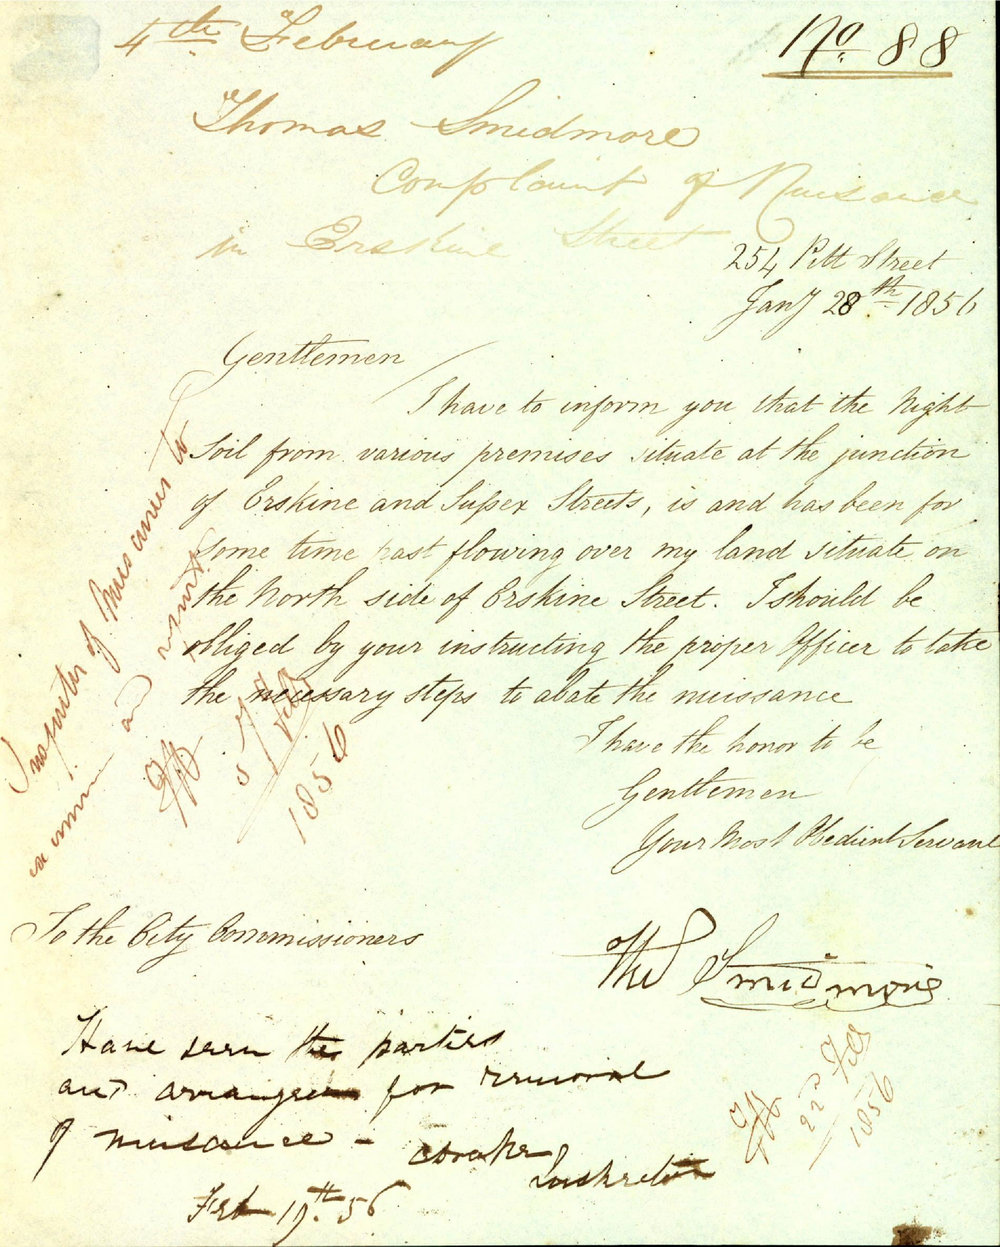 4th February
No 88
Thomas Smidmore
Complaint of Nuisance
in Erskine Street
254 Pitt Street
Jany 28th 1856
Gentlemen
I have to inform you that the Night
Soil from various premises situate at the junction
of Erskine and Sussex Streets, is and has been for
some time past flowing over my land situate on
the North side of Erskine Street. I should be
obliged by your instructing the proper Officer to take
the necessary steps to abate the nuissance
I have the honor to be
Gentlemen
Your Most Obedient Servant
Thos Smidmore
To the City Commissioners
Inspector of Nuisances to
examine and report
5 Feb
1856
Have seen the parties
and arranged for removal
of nuisance -
Inspector
Feb 19th 56
22d Feb
1856